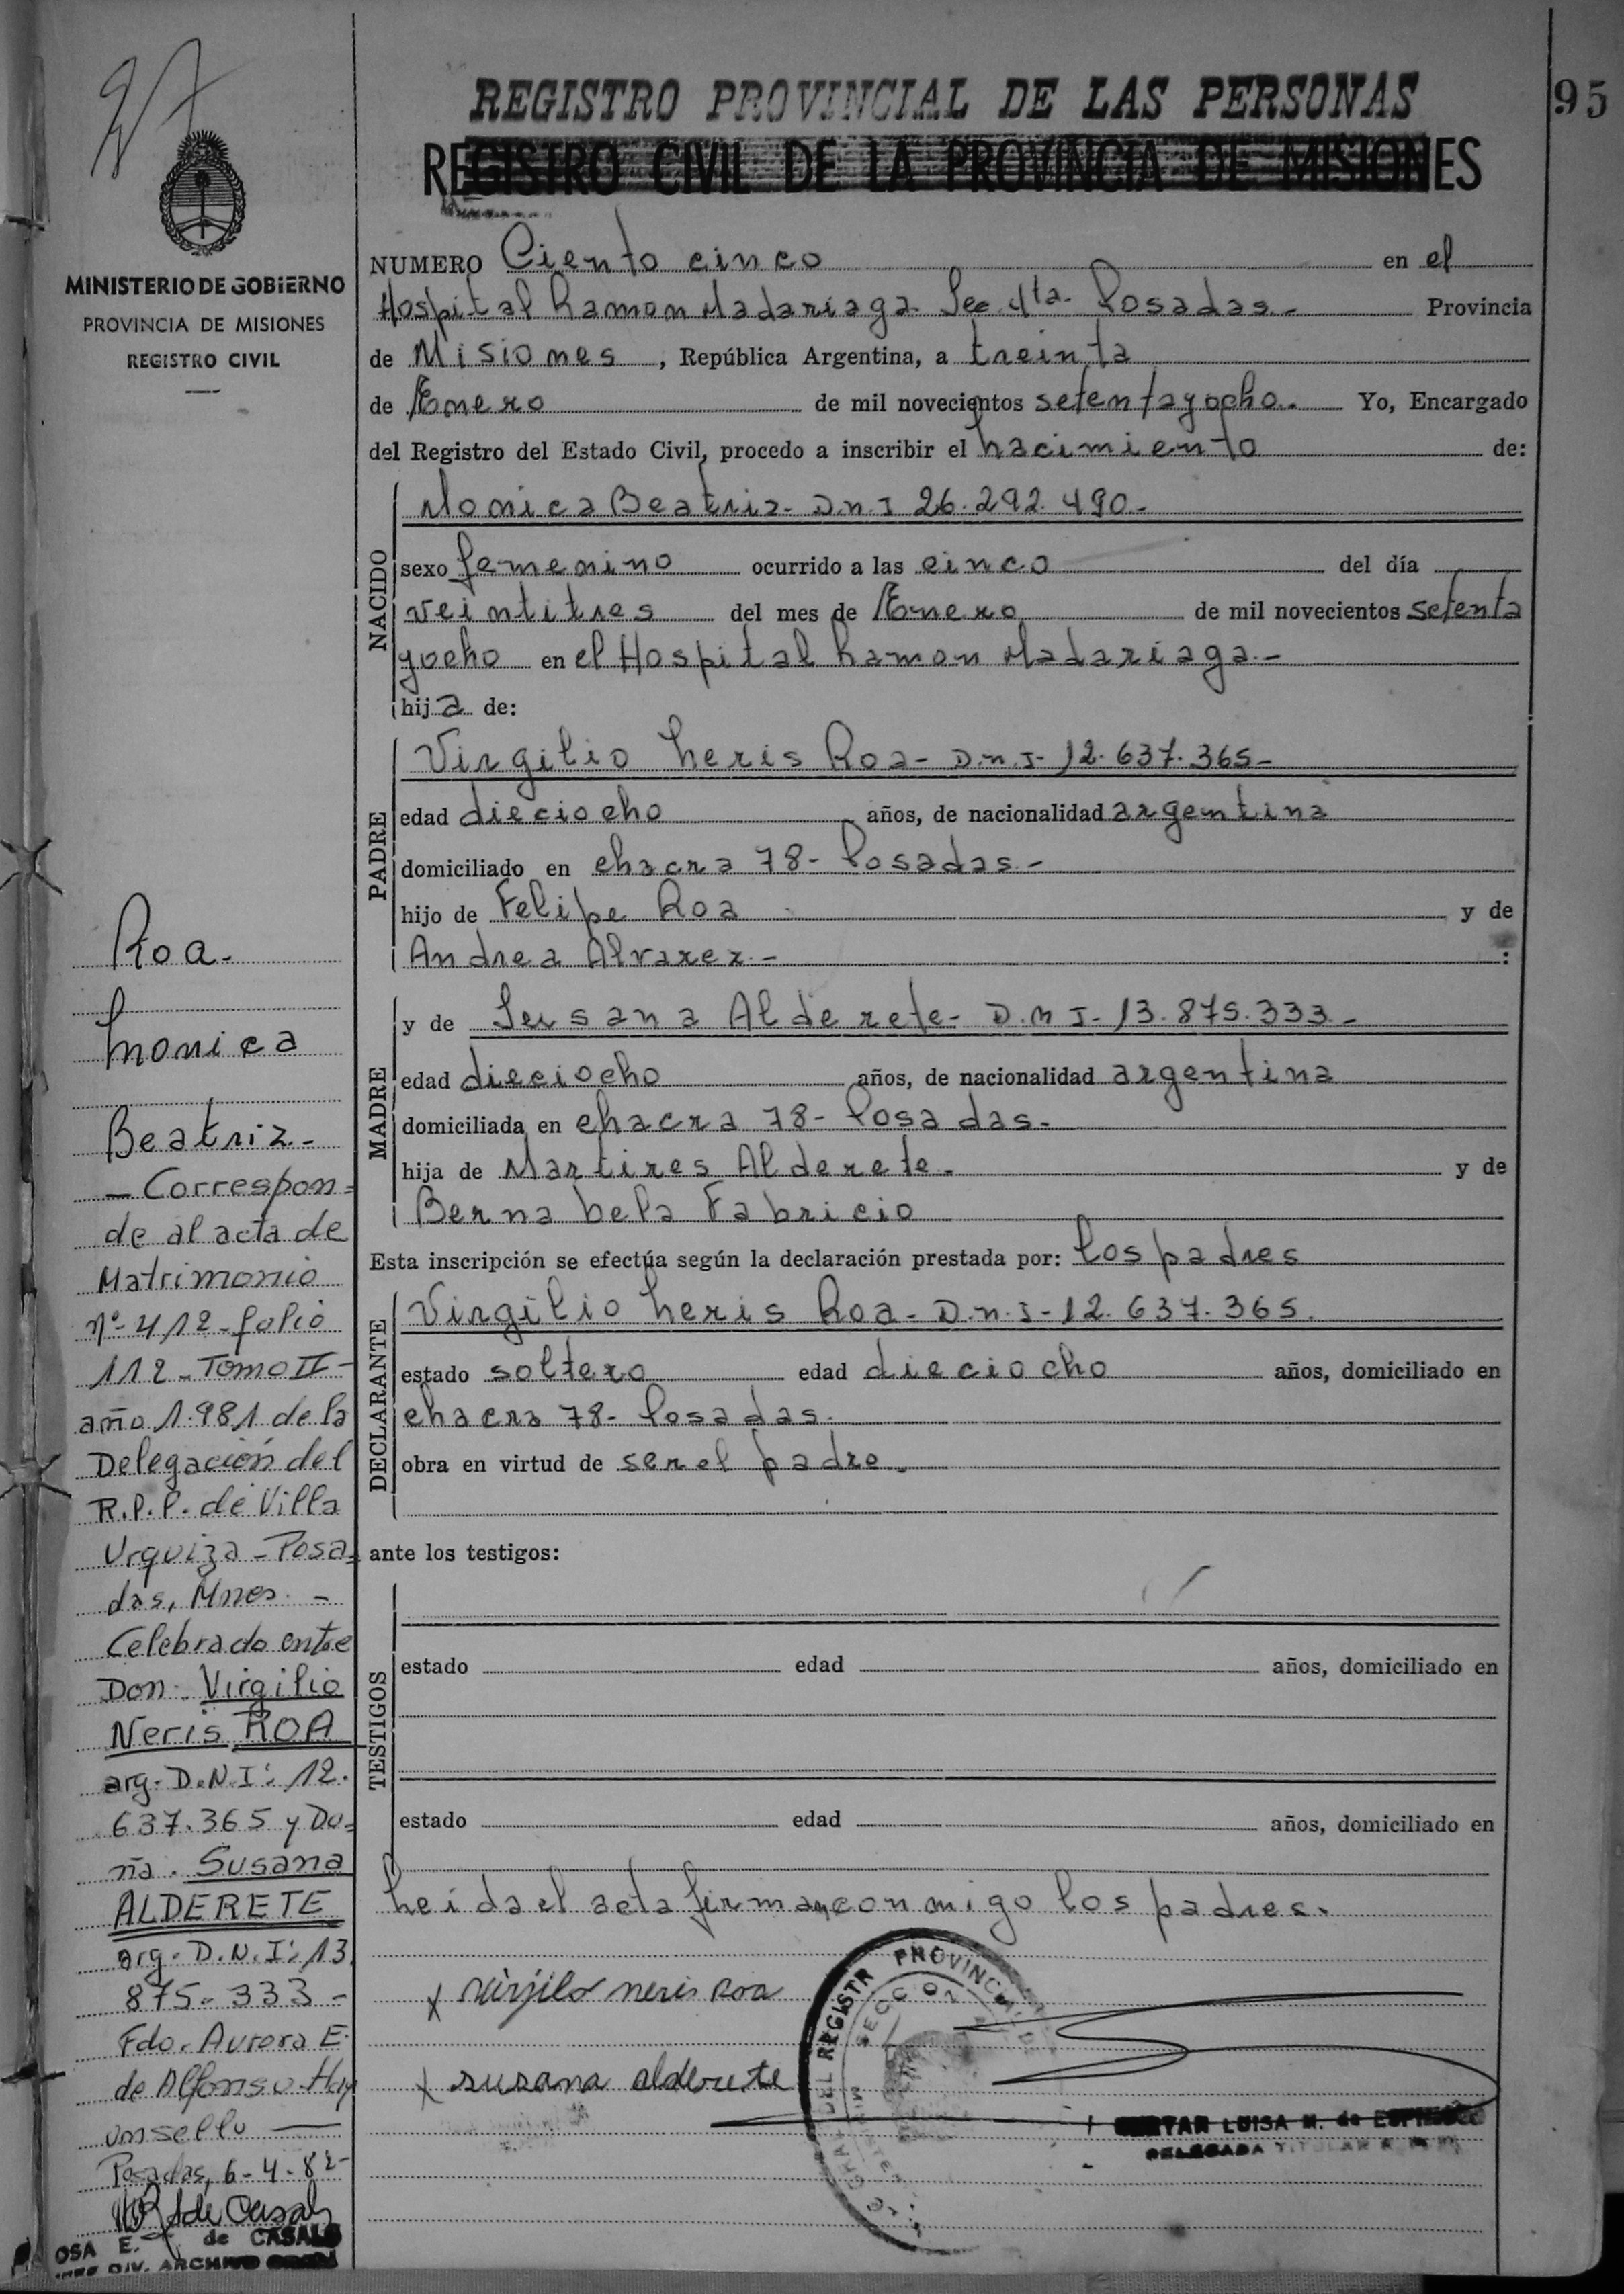 97
95
REGISTRO PROVINCIAL DE LAS PERSONAS
REGISTRO CIVIL DE LA PROVINCIA DE MISIONES
MINISTERIO DE GOBIERNO
PROVINCIA DE MISIONES
REGISTRO CIVIL
NUMERO Ciento cinco en el
Hospital Ramon Madariaga. Sec. 4ta. Posadas.- Provincia
de Misiones, República Argentina, a treinta
de Enero de mil novecientos setentayocho. Yo, Encargado
del Registro del Estado Civil, procedo a inscribir el nacimiento de:
NACIDO
Monica Beatriz- D.n.I 26.292.490-
sexo femenino ocurrido a las cinco del día
veintitres del mes de Enero de mil novecientos setenta
yocho en el Hospital Ramon Madariaga.-
hija de:
PADRE
Virgilio Neris Roa- D.n.I- 12.637.365-
edad dieciocho años, de nacionalidad argentina
domiciliado en chacra 78- Posadas.-
hijo de Felipe Roa y de
Andrea Alvarez.- :
MADRE
y de Susana Alderete- D.n I- 13.875.333-
edad dieciocho años, de nacionalidad argentina
domiciliada en chacra 78- Posadas.
hija de Martires Alderete. y de
Bernabela Fabricio
Esta inscripción se efectúa según la declaración prestada por: los padres
DECLARANTE
Virgilio Neris Roa- D.n.I-12.637.365.
estado soltero edad dieciocho años, domiciliado en
chacra 78- Posadas.
obra en virtud de ser el padre.
ante los testigos:
TESTIGOS
estado edad años, domiciliado en
estado edad años, domiciliado en
Leida el acta firman conmigo los padres.
x Virjilo neris Roa
x susana alderete
DEL REGISTR PROVINCIAL DE
SECC
LUISA M. de
DELEGADA TITULAR
Roa.
Monica
Beatriz.-
- Correspon=
de al acta de
Matrimonio
nº 412-folio
112-Tomo II-
año 1.981 de la
Delegación del
R.P.P. de Villa
Urquiza - Posa=
das, Mnes. -
Celebrado entre
Don. Virgilio
Neris ROA
arg- D.N.I: 12.
637.365 y Do=
ña. Susana
ALDERETE
arg- D.N.I: 13.
875-333-
Fdo. Aurora E.
de Alfonso. Hay
un sello
Posadas, 6-4-82-
de Casals
OSA E. de CASALS
DIV. ARCHIVO